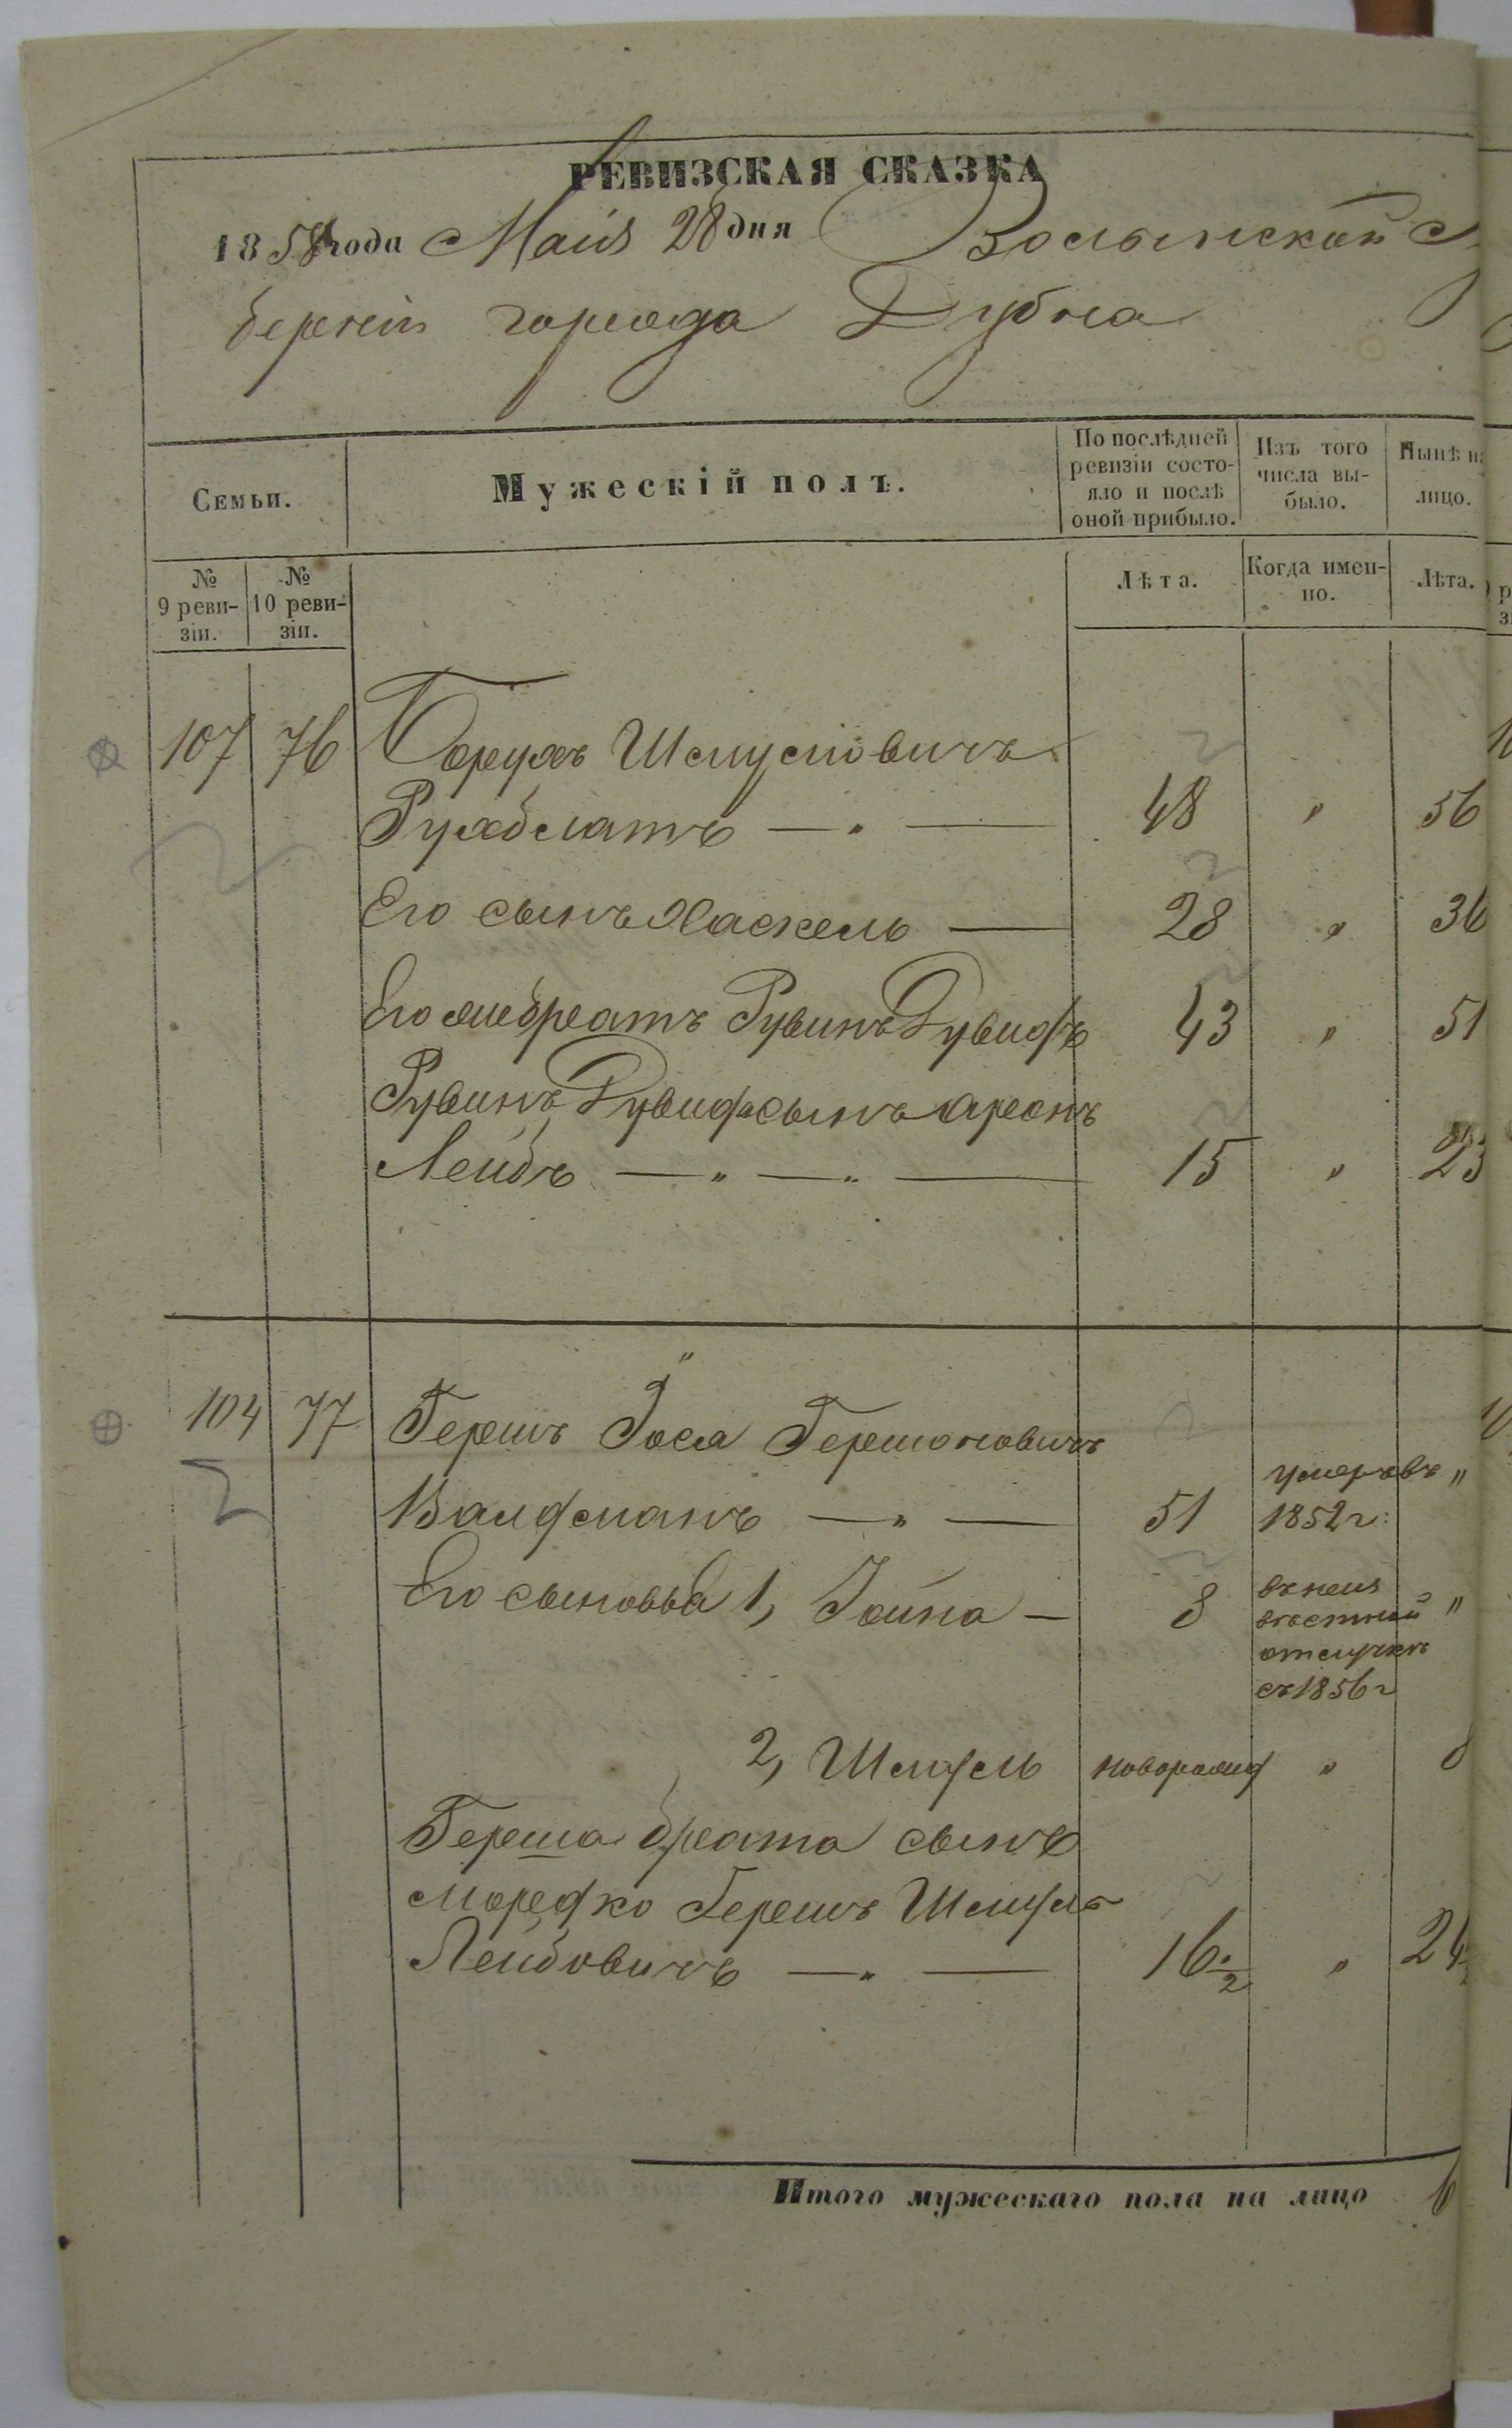 РЕВИЗСКАЯ СКАЗКА
1858 года Маія 28 дня Волынской Гу
берніи города Дубна
Семьи.
Мужескій полъ.
По послѣдней ревизіи состо-
яло и послѣ
оной прибыло.
Изъ того
числа вы-
было.
Нынѣ на
лицо.
№
9 реви-
зіи.
№
10 реви-
зіи.
Лѣта.
Когда имен-
но.
Лѣта.
107 76 Борухъ Шмуліовичъ
Рухблатъ — " — 48 " 56
Его сынъ Хаскель — 28 " 36
Его же братъ Рувинъ Дувидъ 43 " 51
Рувинъ Дувида сынъ Аронъ
Лейбъ — " — " — 15 " 23
104 77 Гершъ Іося Гершоновичъ
Валдманъ — " — 51 умеръ въ 1852 г: "
Его сыновья 1, Іойна — 8 въ неиз
вѣстной "
отлучкѣ
съ 1856 г
2, Шмуль новорожд " 8
Герша брата сынъ
Мордко Гершъ Шмуль
Лейбовичъ — " — 16½ " 24
Итого мужескаго пола на лицо 6